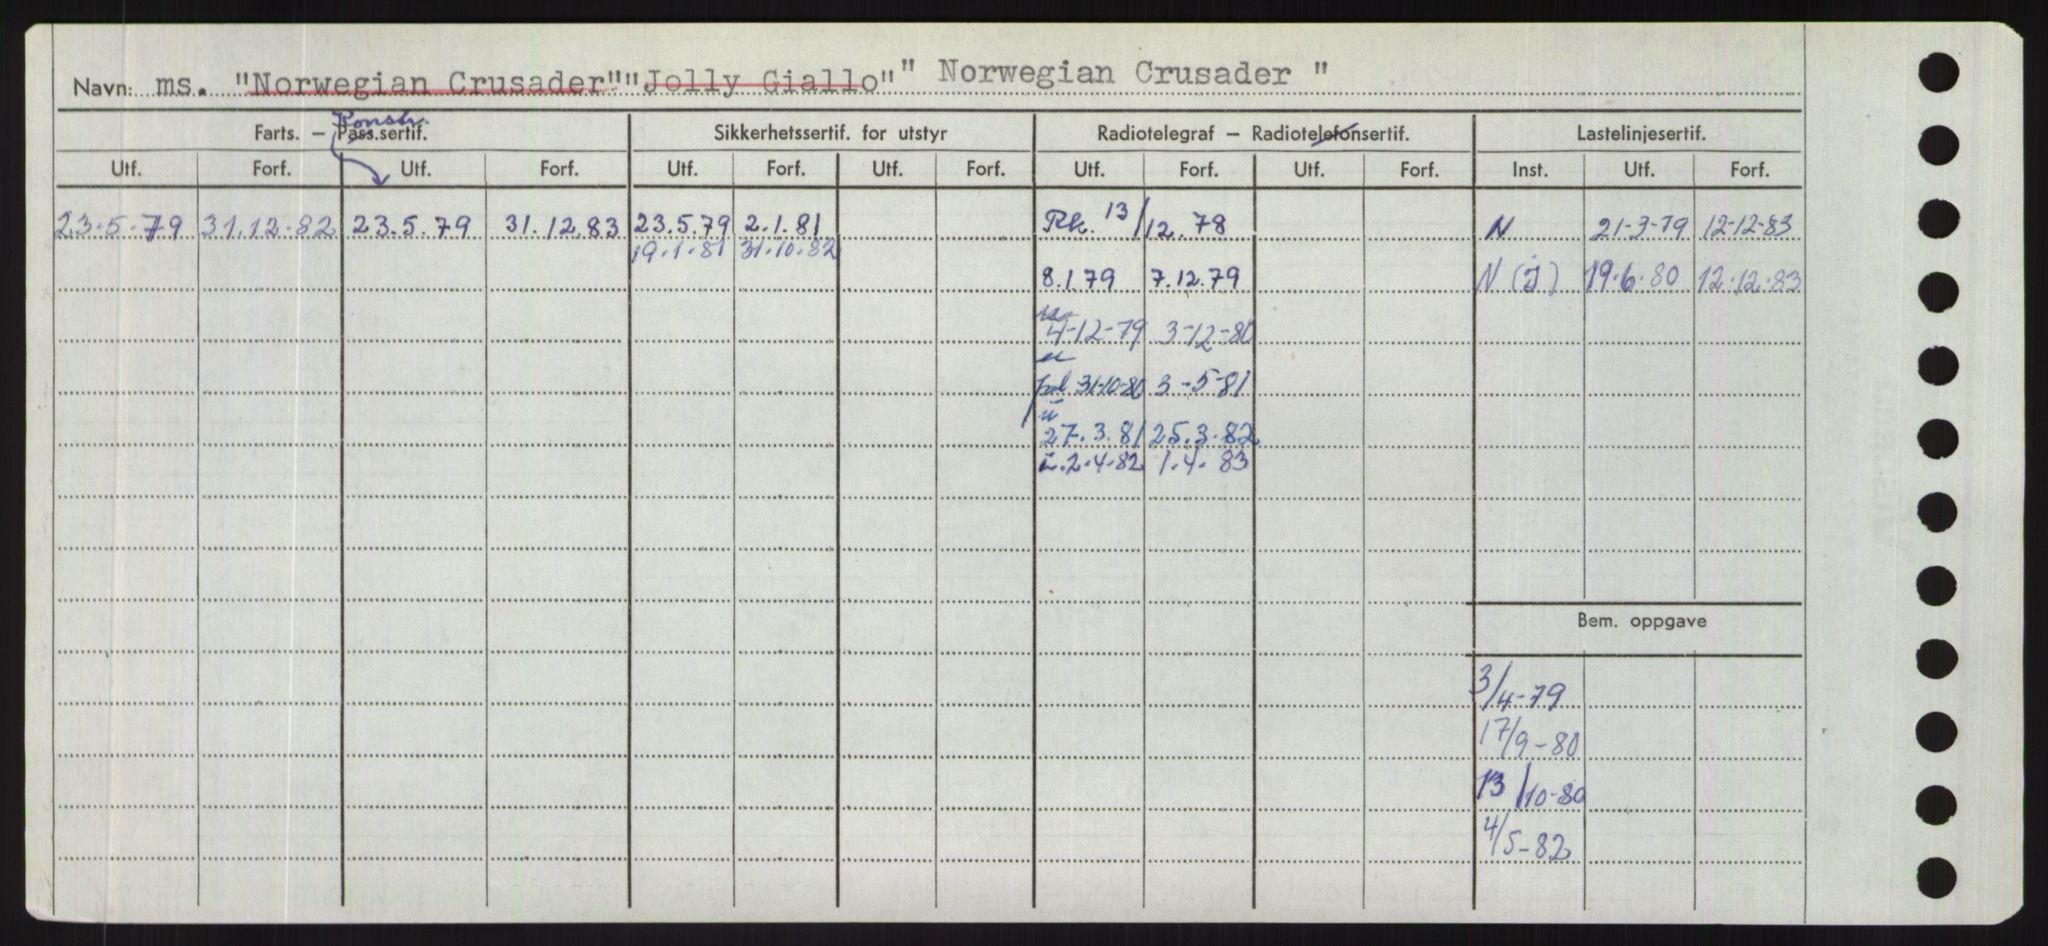 Navn: ms. "Norwegian Crusader" "Jolly Giallo" " Norwegian Crusader "
Konstr.
Farts. – Pass.sertif. Sikkerhetssertif. for utstyr Radiotelegraf – Radiotelefonsertif. Lastelinjesertif.
Utf. Forf. Utf. Forf. Utf. Forf. Utf. Forf. Utf. Forf. Utf. Forf. Inst. Utf. Forf.
23.5.79 31.12.82 23.5.79 31.12.83 23.5.79 2.1.81 Rk. 13/12.78 N 21-3-79 12-12-83
19.1.81 31.10.82
8.1.79 7.12.79 N (J) 19.6.80 12.12.83
4-12-79 3-12-80
31-10-80 3-5-81
27.3.81 25.3.82
2.4.82 1.4.83
Bem. oppgave
3/4-79
17/9-80
13/10-80
4/5-82